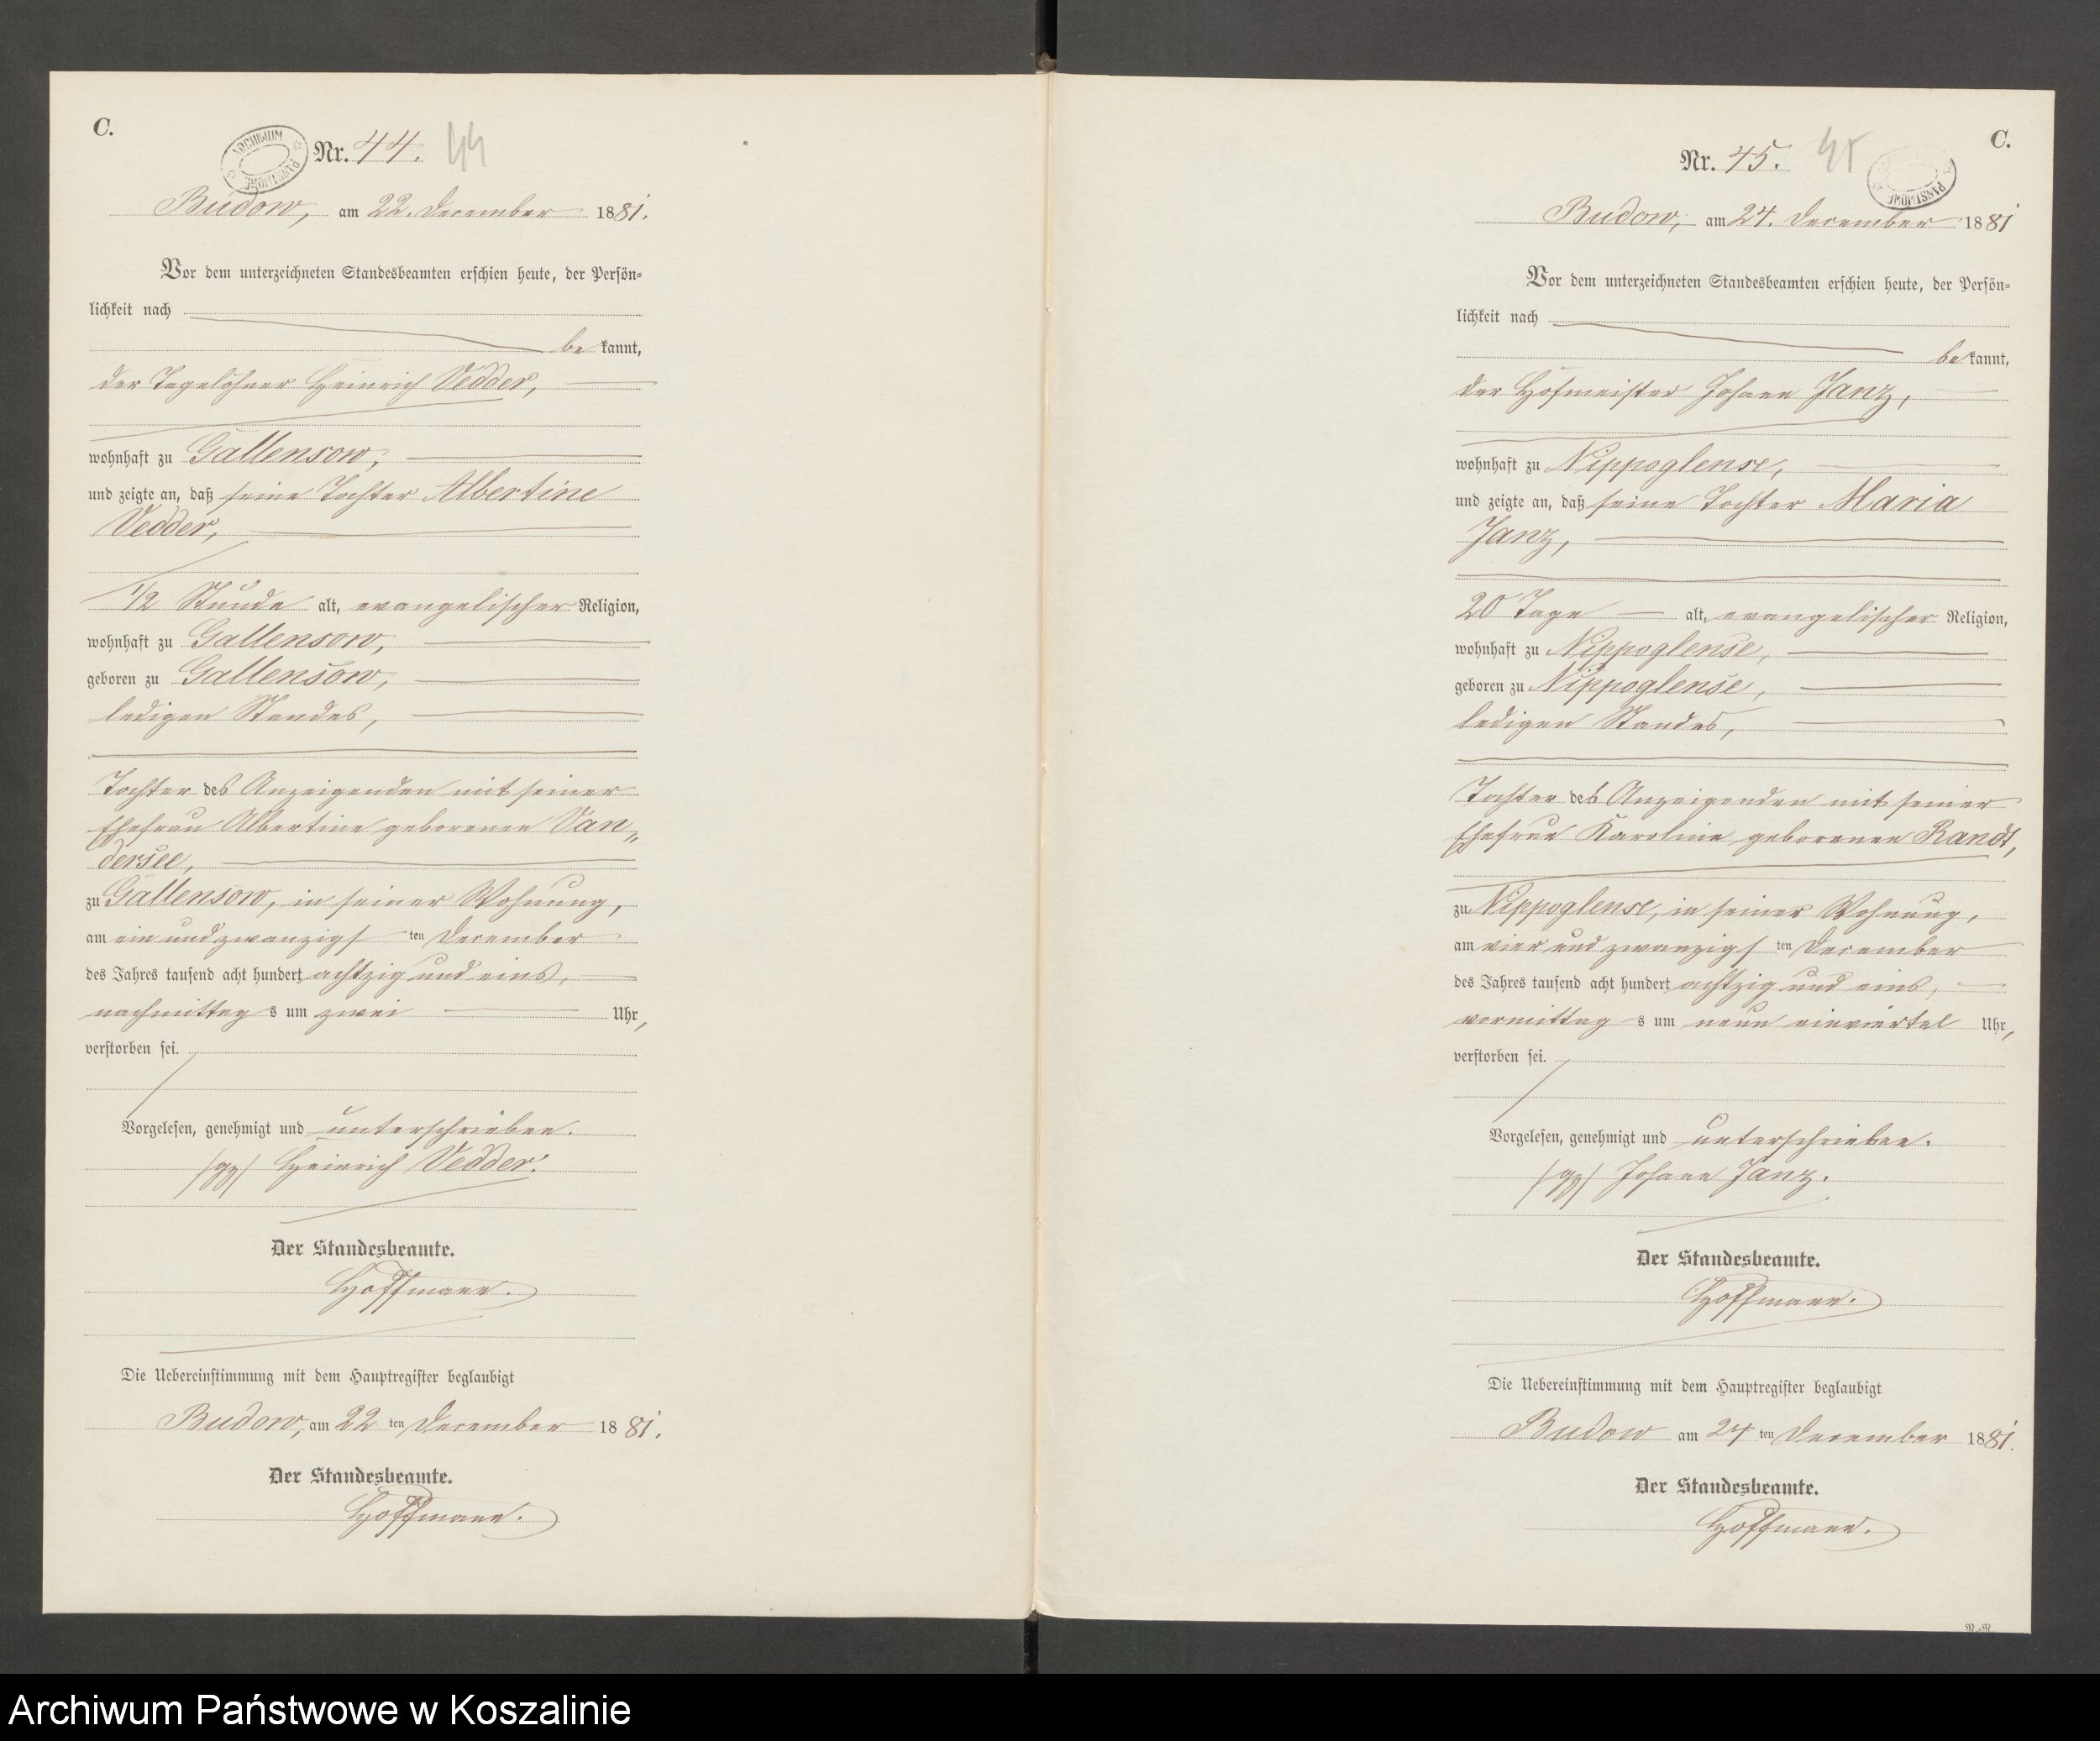 C.
ARCHIWUM PAŃSTWOWE
Nr. 44. 44
Budow, am 22. December 1881.
Vor dem unterzeichneten Standesbeamten erschien heute, der Persön-
lichkeit nach
be kannt,
der Tagelöhner Heinrich Vedder,
wohnhaft zu Gallensow,
und zeigte an, daß seine Tochter Albertine
Vedder,
1/2 Stunde alt, evangelischer Religion,
wohnhaft zu Gallensow,
geboren zu Gallensow,
ledigen Standes,
Tochter des Anzeigenden mit seiner
Ehefrau Albertine geborenen Van„
dersee,
zu Gallensow, in seiner Wohnung,
am ein und zwanzigs ten December
des Jahres tausend acht hundert achtzig und eins,
nachmittag s um zwei Uhr,
verstorben sei.
Vorgelesen, genehmigt und unterschrieben.
/gz/ Heinrich Vedder.
Der Standesbeamte.
Hoffmann.
Die Uebereinstimmung mit dem Hauptregister beglaubigt
Budow, am 22 ten December 1881.
Der Standesbeamte.
Hoffmann.
C.
Nr. 45. 45
PAŃSTWOWE
Budow, am 24. December 1881
Vor dem unterzeichneten Standesbeamten erschien heute, der Persön-
lichkeit nach
be kannt,
der Hofmeister Johann Janz,
wohnhaft zu Nippoglense,
und zeigte an, daß seine Tochter Maria
Janz,
20 Tage alt, evangelischer Religion,
wohnhaft zu Nippoglense,
geboren zu Nippoglense,
ledigen Standes,
Tochter des Anzeigenden mit seiner
Ehefrau Karoline geborenen Randt,
zu Nippoglense, in seiner Wohnung,
am vier und zwanzigs ten December
des Jahres tausend acht hundert achtzig und eins,
vormittag s um neun einviertel Uhr,
verstorben sei.
Vorgelesen, genehmigt und unterschrieben.
/gz/ Johann Janz.
Der Standesbeamte.
Hoffmann.
Die Uebereinstimmung mit dem Hauptregister beglaubigt
Budow am 24 ten December 1881.
Der Standesbeamte.
Hoffmann.
Archiwum Państwowe w Koszalinie